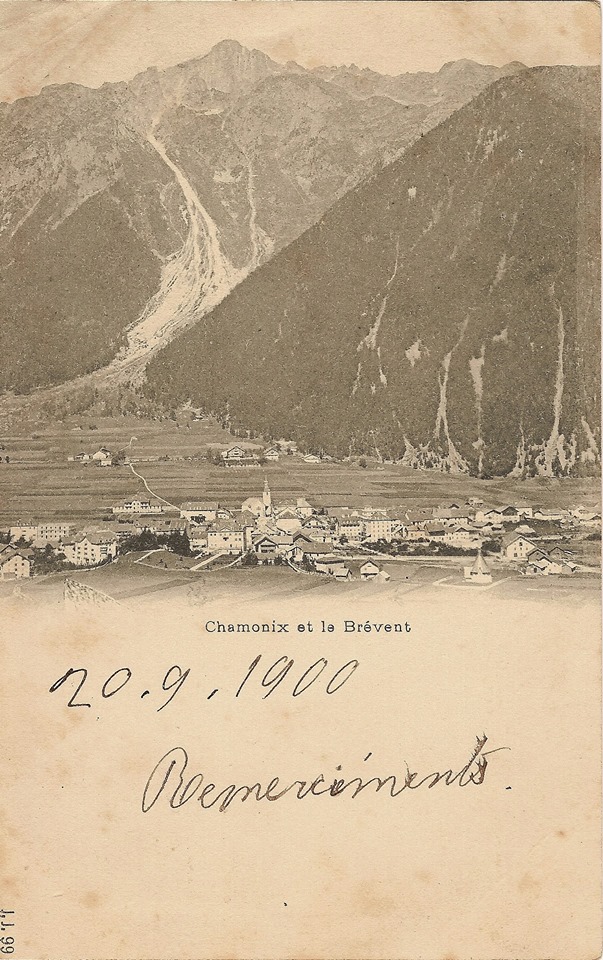 Chamonix et le Brévent
20.9.1900
Remerciments.
J.J. 99